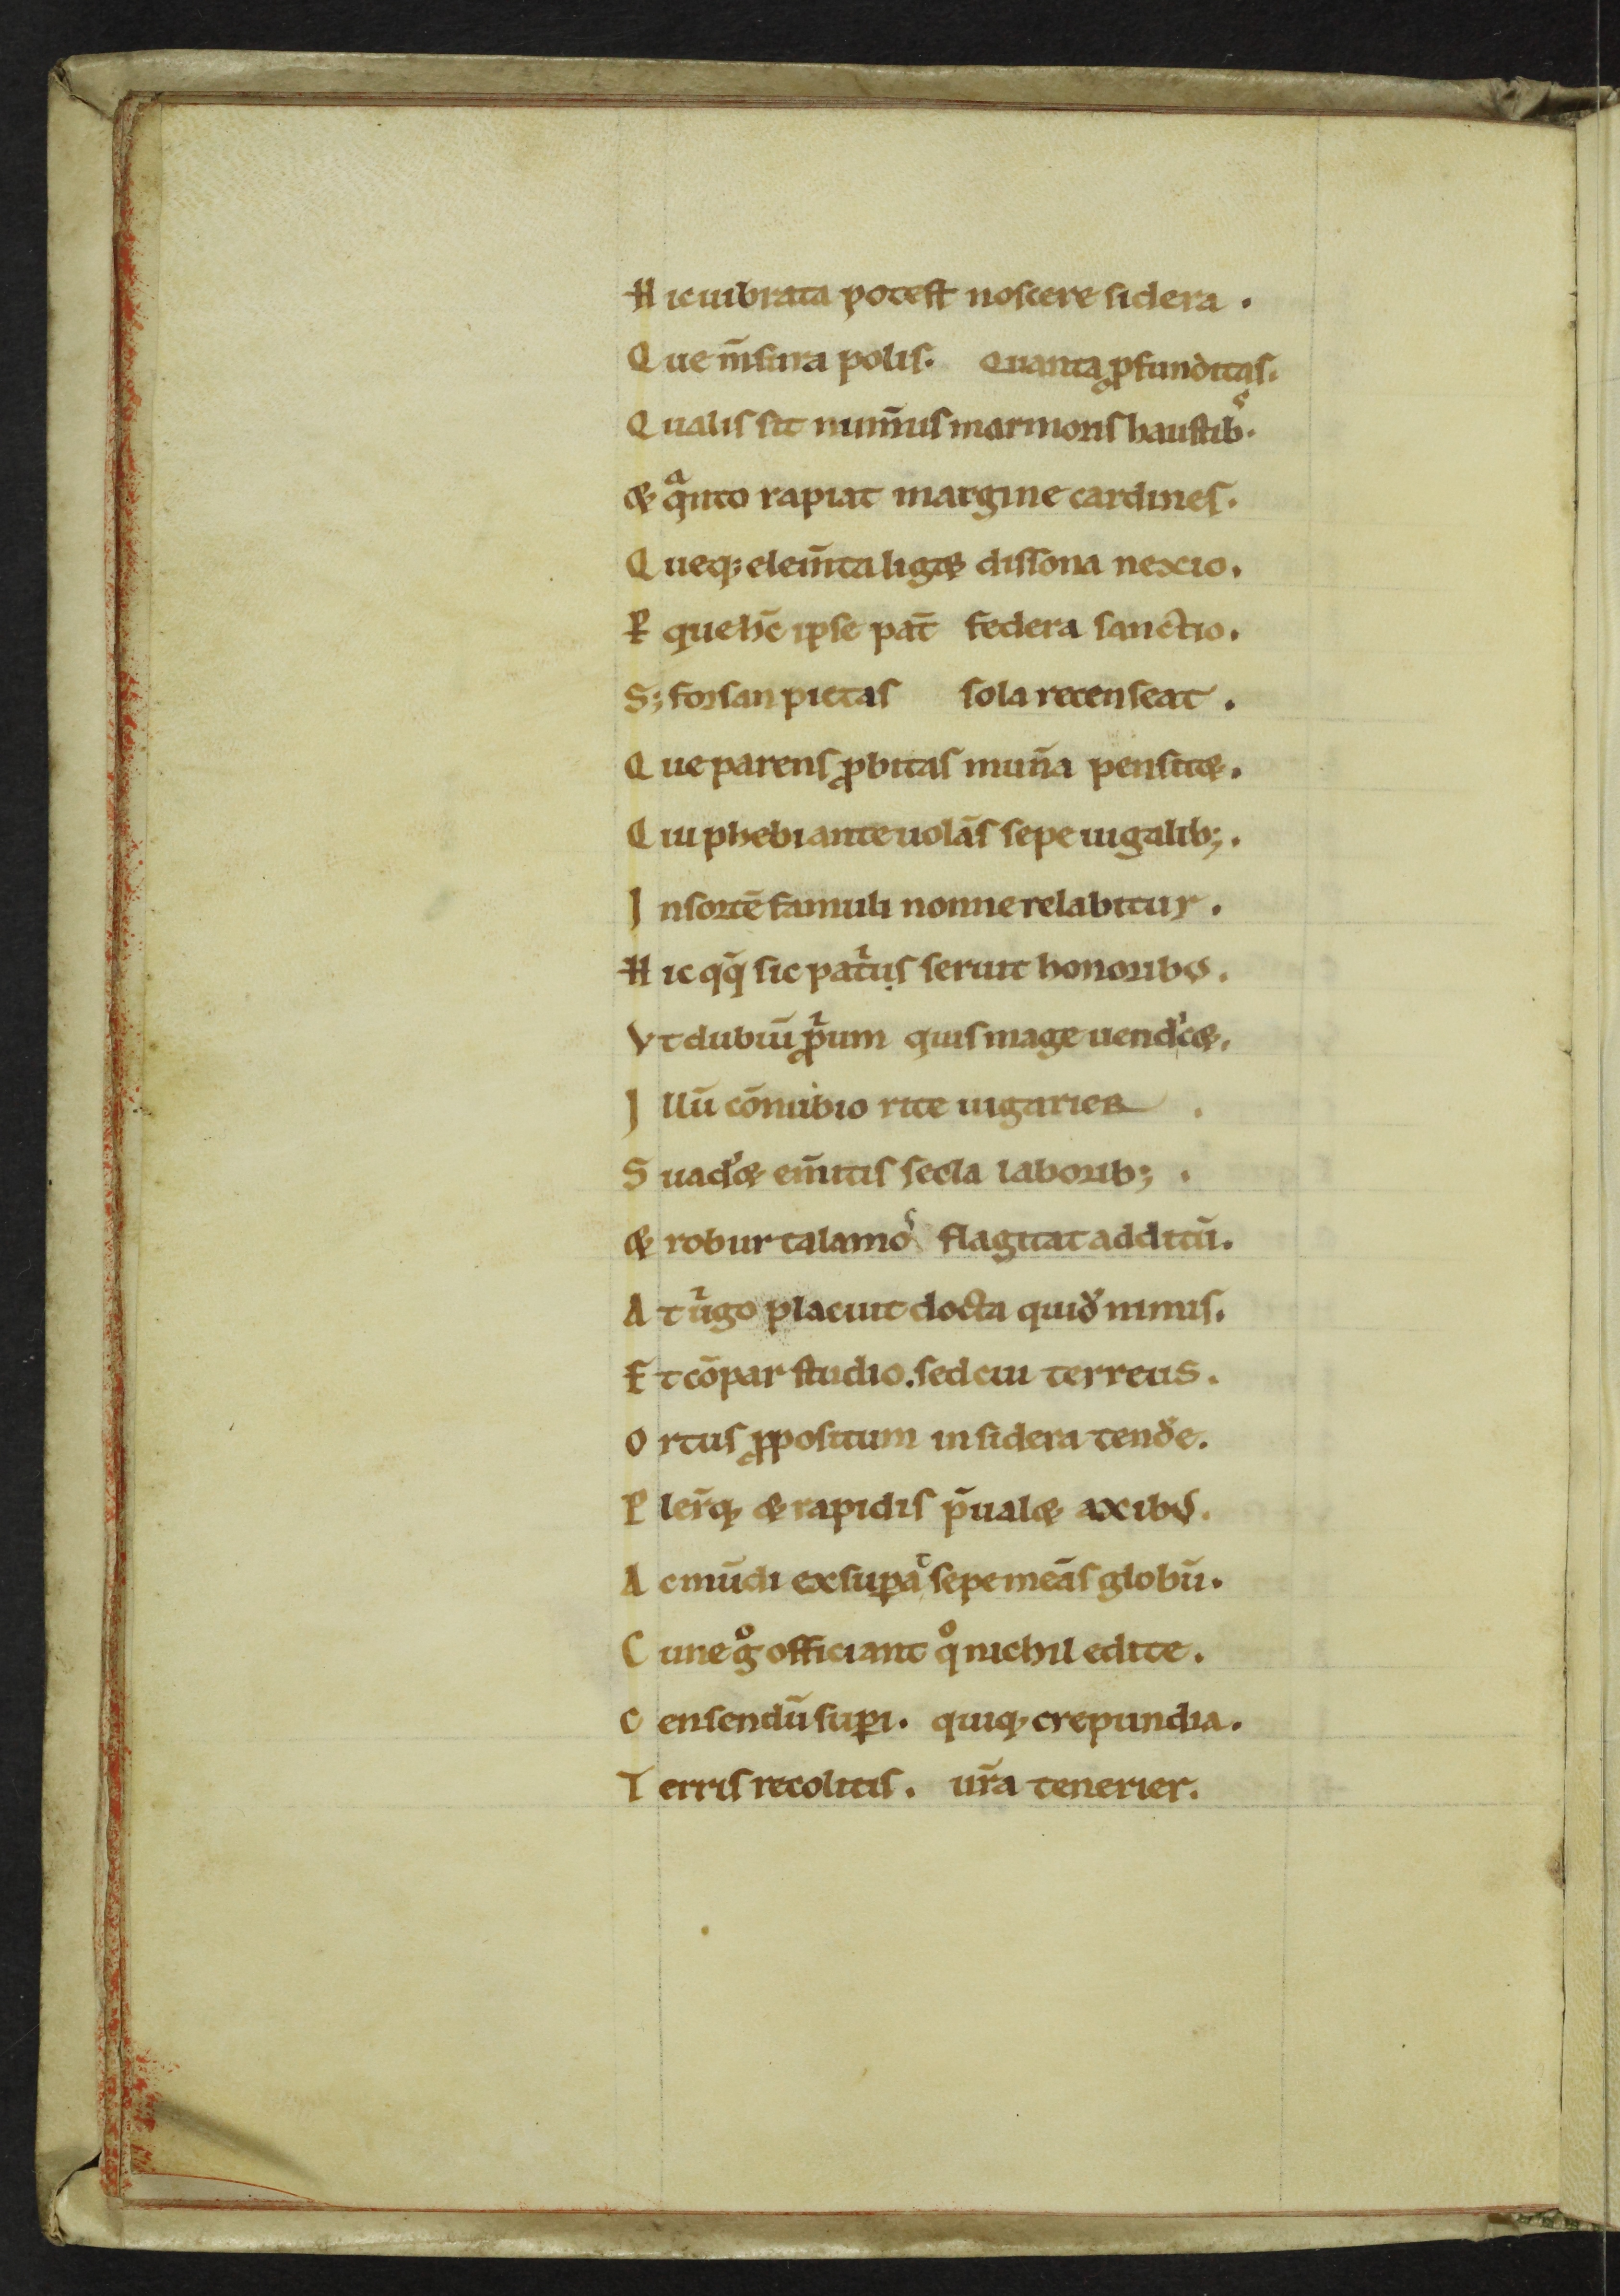 Hic uibrata potest noscere sidera .
Que m̄sura polis. Quanta ꝓfunditas.
Qualis sit nimius marmoris haustibꝰ.
& qͣnto rapiat margine cardines.
Queq; elem̄ta liget dissona nexio.
Per que hec ipse pat̄ federa sanctio.
S; forsan pietas sola recenseat .
Que parens ꝓbitas mun̄a penset.
Cui phebi ante uolās sepe iugalib; .
In sortē famuli nonne relabitur .
Hic qq̄ sic patⁱus seruit honoribꝰ .
Vt dubiū ꝓⁱum quis mage uendicet.
Illū cōnubio rite iugarier .
Suadet em̄itis secla laborib; .
& robur talamoꝰ flagitat additū.
At uⁱgo placuit docta quidē nimis.
Et cōpar studio. sed cui terreus .
Ortus ꝓpositum in sidera tendˀe.
Plerūq; & rapidis p̄ualet axibꝰ.
Ac mūdi exsuꝑat sepe meās globū.
Cui ne gͦ officiant qͦ nichil edite.
Censendū suꝑi. quiq; crepundia.
Terris recolitis . ur̄a tenerier.